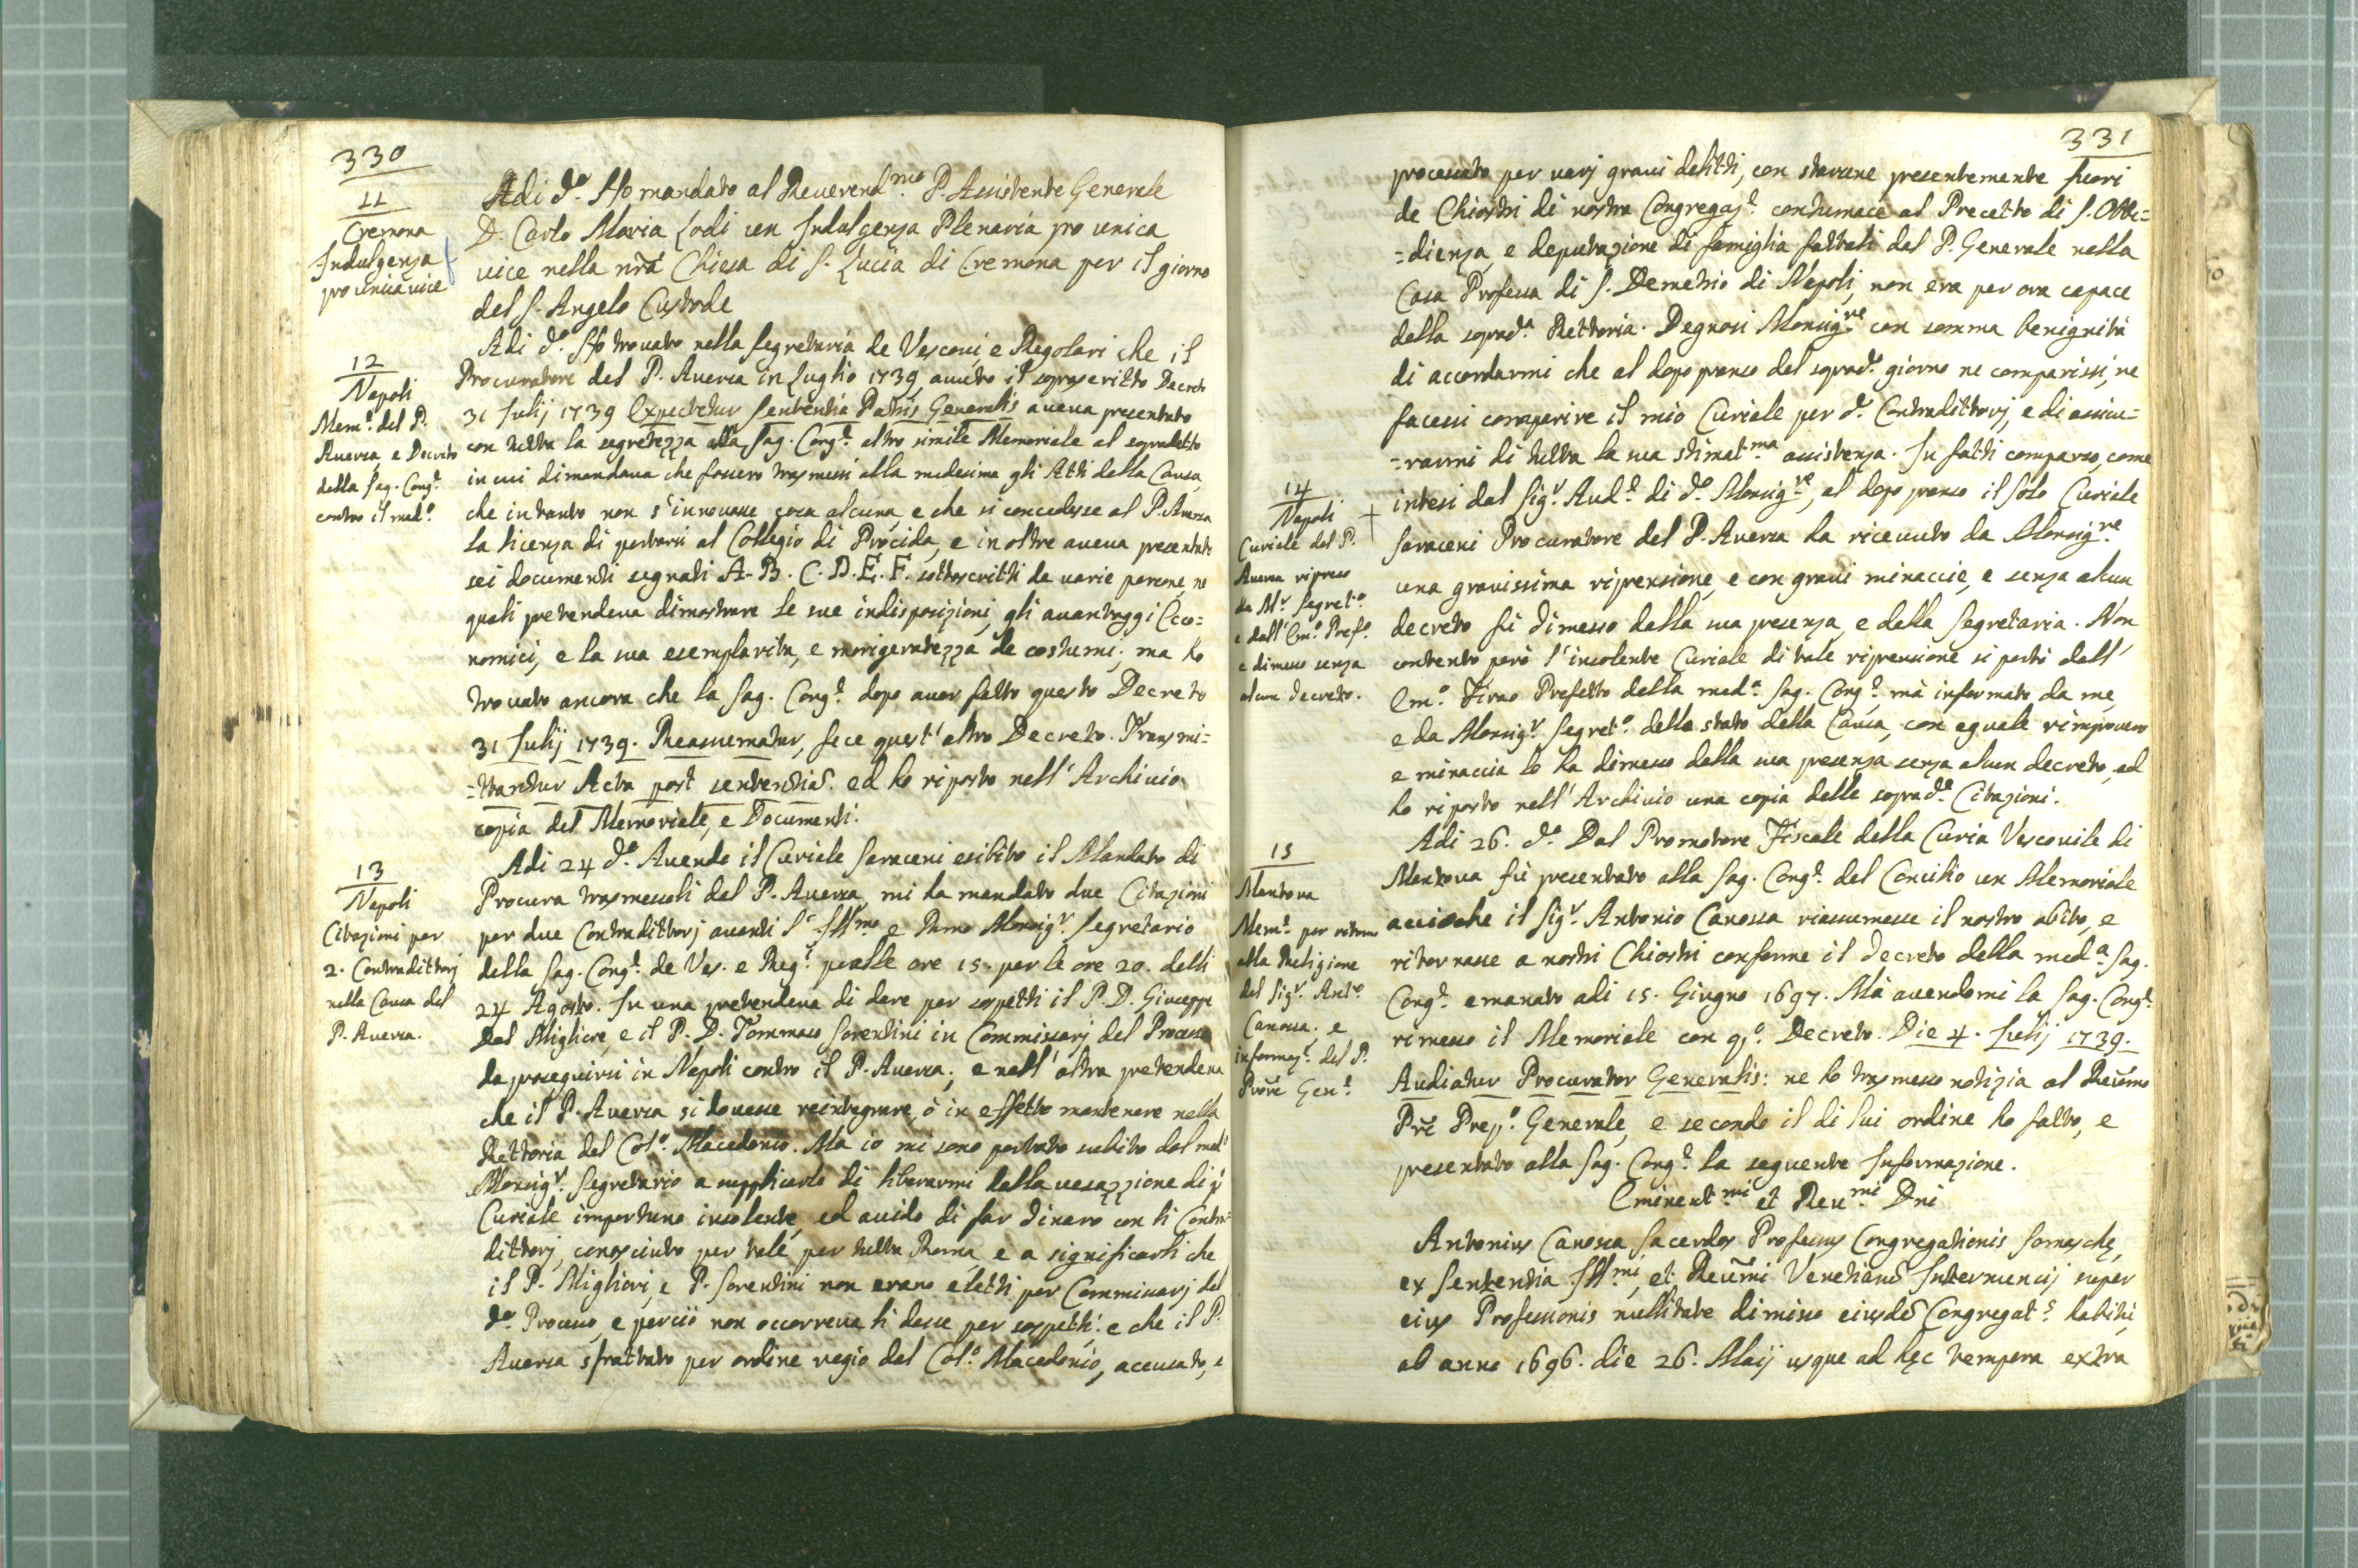 330
11
Cremona
Indulgenza
pro unica vice
Adi d.º Ho mandato al Reverend.mo P. Assistente Generale
D. Carlo Maria Lodi un Indulgenza Plenaria pro unica
vice nella nrã Chiesa di S. Lucia di Cremona per il giorno
del S. Angelo Custode
12
Napoli
Mem.e del P.
Aversa, e Decreto
della Sag. Cong.e
contro il med.º
Adi d.º Ho trovato nella Segretaria de Vescovi e Regolari che il
Procuratore del P. Aversa in Luglio 1739, avuto il sopras critto Decreto
31 Julij 1739 Expectetur Sententia Patris Generalis aveva presentato
con tutta la segretezza alla Sag. Cong.e altro simile Memoriale al sopradetto
in cui dimandava che fossero trasmessi alla medesima gli Atti della Causa,
che intanto non s'innovasse cosa alcuna, e che si concedesse al P. Aversa
la licenza di portarsi al Collegio di Procida, e in oltre aveva presentato
sei documenti segnati A. B. C. D. E. F. sottoscritti da varie persone, ne
quali pretendeva dimostrare le sue indisposizioni, gli avantaggi Eco=
nomici, e la sua esemplarità, e morigeratezza de costumi; ma ho
trovato ancora che la Sag. Cong.e dopo aver fatto questo Decreto
31 Julij 1739. Reassumatur, fece quest'altro Decreto. Transmi=
=ttantur Acta post sententiã. ed ho riposto nell'Archivio
copia del Memoriale, e Documenti.
13
Napoli
Citazioni per
2. Contradittorj
nella Causa del
P. Aversa.
Adi 24 d.º Avendo il Curiale Saraceni esibito il Mandato di
Procura trasmessoli dal P. Aversa, mi ha mandato due Citazioni
per due Contradittorj avanti l' Ill.mo e Rmo Monsig.r Segretario
della Sag. Cong.e de Ves. e Reg.i dalle ore 15. per le ore 20. delli
24 Agosto. In una pretendeva di dare per sospetti il P. D. Giuseppe
Dal Migliore, e il P. D. Tommaso Sorentini in Commissarj del Processo
da proseguirsi in Napoli contro il P. Aversa; e nell'altra pretendeva
che il P. Aversa si dovesse reintegrare, ò in effetto mantenere nella
Rettoria del Col.º Macedonio. Ma io mi sono portato subito dal med.º
Monsig.r Segretario a supplicarlo di liberarmi dalla vesazzione di q.º
Curiale importuno insolente, ed avido di far dinaro con li Contra=
dittorj, conosciuto per tale, per tutta Roma, e a significarli che
il P. Migliori, e P. Sorentini non erano eletti per Commissarj del
d.º Processo, e perciò non occorreva li desse per sospetti. e che il P.
Aversa sfrattato per ordine regio dal Col.º Macedonio, accusato, e
331
processato per varj gravi delitti, con starsene presentemente fuori
de Chiostri di nostra Congregaz.e contumace al Precetto di S. Obbe=
=dienza, e deputazione di famiglia fattali dal P. Generale nella
Casa Professa di S. Demetrio di Napoli, non era per ora capace
della soprad.a Rettoria. Degnosi Monsig.re con somma benignità
di accordarmi che al dopo pranso del soprad.º giorno ne comparissi, ne
facessi comparire il mio Curiale per d.i Contradittorj, e di assicu=
=rarmi di tutta la sua stimat.ma assistenza. In fatti comparso, come
14
Napoli
Curiale del P.
Aversa ripreso
da M.r Segret.º
e dall'Em.º Pref.º
e dimesso senza
alcun decreto.
intesi dal Sig.r Aud.e di d.º Monsig.re, al dopo pranso il solo Curiale
Saraceni Procuratore del P. Aversa ha ricevuto da Monsig.re
una gravissima riprensione, e con gravi minaccie, e senza alcun
decreto fù dimesso dalla sua presenza, e della Segretaria. Non
contento però l'insolente Curiale di tale riprensione si portò dall'
Em.º Firao Prefetto della med.a Sag. Cong.e, mà informato da me,
e da Monsig.r Segret.º dello stato della Causa, con eguale rimprovero
e minaccia lo ha dimesso dalla sua presenza senza alcun decreto, ed
ho riposto nell'Archivio una copia delle soprad.e Citazioni.
15
Mantova
Mem.e per ritorno
alla Religione
del Sig.r Ant.º
Canossa. e
informaz.e del P.
Procre Gen.e
Adi 26. d.º Dal Promotore Fiscale della Curia Vescovile di
Mantova fù presentato alla Sag. Cong.e del Concilio un Memoriale
acciochè il Sig.r Antonio Canossa riassumesse il nostro abito, e
ritornasse a nostri Chiostri conforme il decreto della med.a Sag.
Cong.e emanato adi 15. Giugno 1697. Mà avendomi la Sag. Cong.e
rimesso il Memoriale con q.º Decreto. Die 4. Julij 1739.
Audiatur Procurator Generalis: ne ho trasmesso notizia al Reumo
Pre Prep.º Generale, e secondo il di lui ordine ho fatto, e
presentato alla Sag. Cong.e la seguente Informazione.
Eminent.mi et Reu.mi Dni
Antonius Canossa Sacerdos Professus Congregationis Somaschę,
ex Sententia Ill.mi, et Reumi Venetiarũ Internuncij super
eius Professionis nullitate dimisso eiusdẽ Congregat.s habitu,
ab anno 1696. die 26. Maij usque ad hęc tempora extra